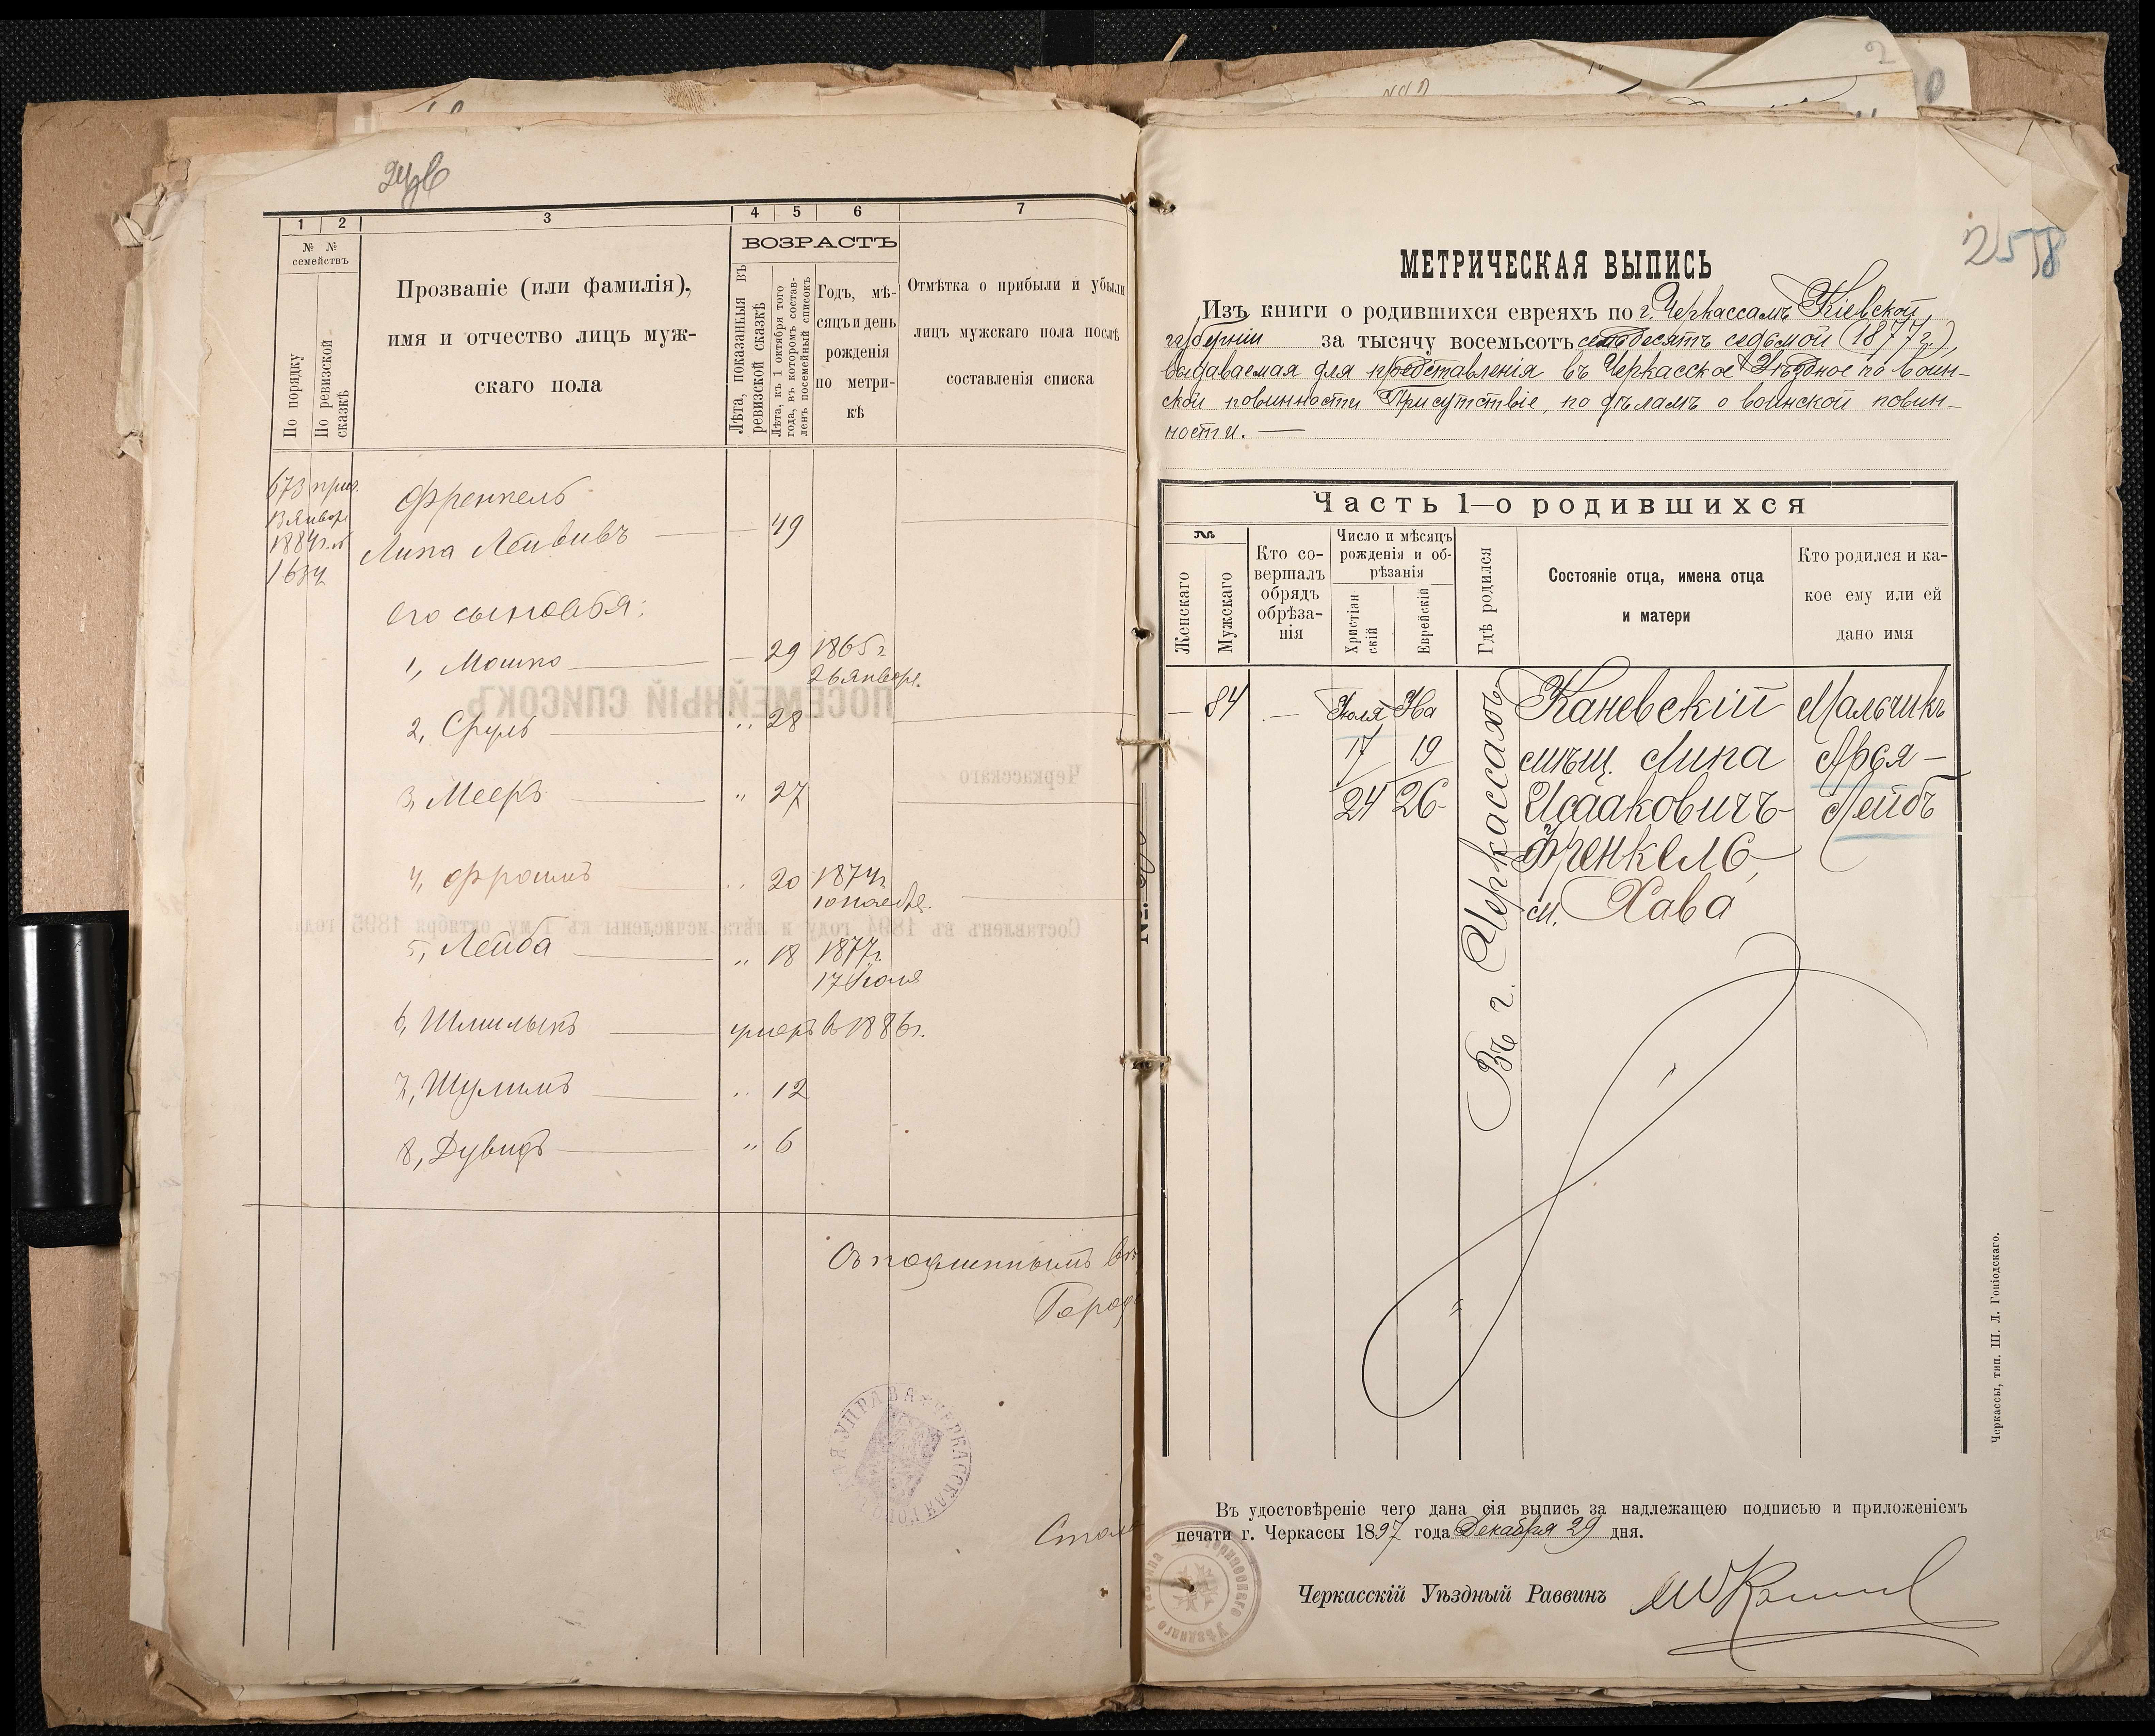 1 2 3 4 5 6 7
№ №
семействъ
По порядку
По ревизской сказкѣ
Прозваніе (или фамилія),
имя и отчество лицъ муж-
скаго пола
ВОЗРАСТЪ
Лѣта, показанныя въ
ревизской сказкѣ
Лѣта, къ 1 октября того
года, въ которомъ состав-
ленъ посемейный списокъ
Годъ, мѣ-
сяцъ и день
рожденія
по метри-
кѣ
Отмѣтка о прибыли и убыли
лицъ мужскаго пола послѣ
составленія списка
673
Френкель
Липа Лейбивъ — 49
его сыновья:
1, Мошко — 29 1865г.
26 января.
2, Сруль „ 28
3, Мееръ „ 27
4, Фроимъ „ 20 1874г.
10 ноября.
5, Лейба „ 18 1877г.
17 Іюля
6, Шмилыкъ умеръ в 1886г.
7, Шулимъ „ 12
8, Дувидъ „ 6
Съ подлиннымъ
ПОСЕМЕЙНЫЙ СПИСОКЪ
Черкасскаго
Составленъ въ 1894 году и лѣта исчислены къ 1-му октября 1895 года
МЕТРИЧЕСКАЯ ВЫПИСЬ
Изъ книги о родившихся евреяхъ по г. Черкассамъ Кіевской
губерніи за тысячу восемьсотъ семьдесятъ седьмой (1877 г.),
выдаваемая для представленія въ Черкасское Уѣздное по воин-
ской повинности Присутствіе, по дѣламъ о воинской повин-
ности. —
Часть 1—о родившихся
№
Женскаго
Мужскаго
Кто со-
вершалъ
обрядъ
обрѣза-
нія
Число и мѣсяцъ
рожденія и об-
рѣзанія
Христіан
скій
Еврейскій
Гдѣ родился
Состояніе отца, имена отца
и матери
Кто родился и ка-
кое ему или ей
дано имя
— 84 — Іюля Ава Каневскій Мальчикъ
17 19 мѣщ. Липа Арья —
24 26 Исааковичъ Лейбъ
Френкель,
м. Хава
Въ г. Черкассахъ
Въ удостовѣреніе чего дана сія выпись за надлежащею подписью и приложеніемъ
печати г. Черкассы 1897 года Декабря 29 дня.
Черкасскій Уѣздный Раввинъ
Черкассы, тип. Ш. Л. Гоніодскаго.